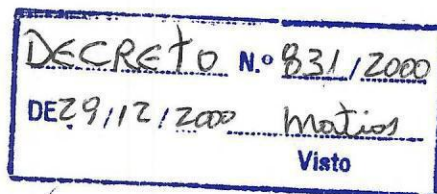 DECRETO N.º 831/2000
DE 29/12/2000 Matios
Visto